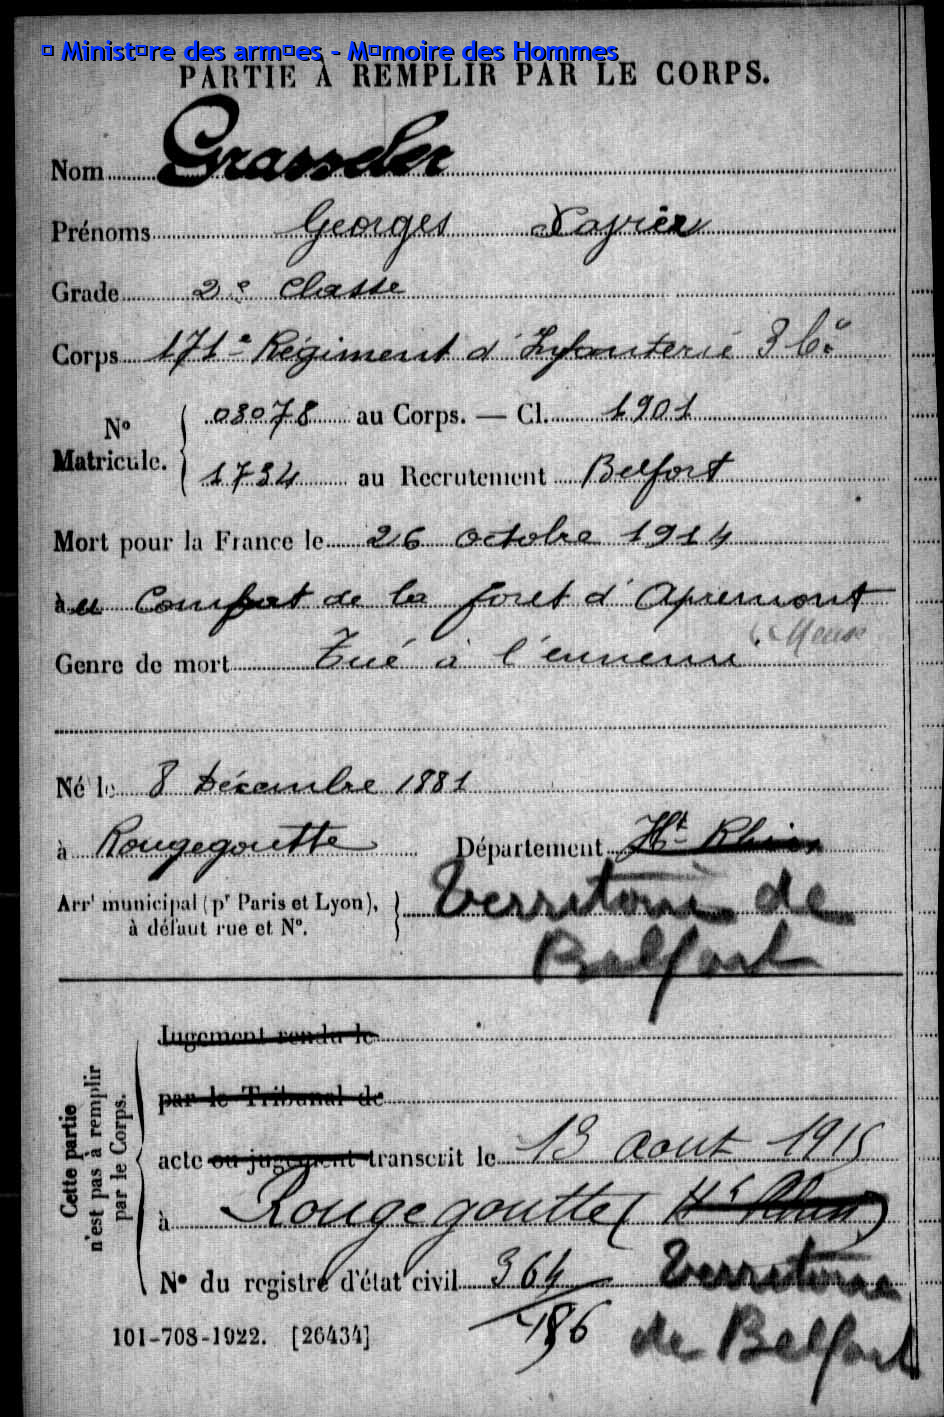 © Ministère des armées - Mémoire des Hommes
PARTIE À REMPLIR PAR LE CORPS.
Nom Grasseler
Prénoms Georges Xavier
Grade 2e Classe
Corps 171e Régiment d'Infanterie 3 Cie
No Matricule. { 08078 au Corps. — Cl. 1901
1734 au Recrutement Belfort
Mort pour la France le 26 Octobre 1914
à u Combat de la foret d'Apremont
(Meuse
Genre de mort Tué à l'ennemi
Né le 8 Décembre 1881
à Rougegoutte Département Ht-Rhin
Arrt municipal (pr Paris et Lyon), à défaut rue et No. } Territoire de
Belfort
Cette partie n'est pas à remplir par le Corps.
Jugement rendu le
par le Tribunal de
acte ou jugement transcrit le 13 Aout 1915
à Rougegoutte (Ht Rhin)
No du registre d'état civil 364 Territoire
186 de Belfort
101-708-1922. [26434]